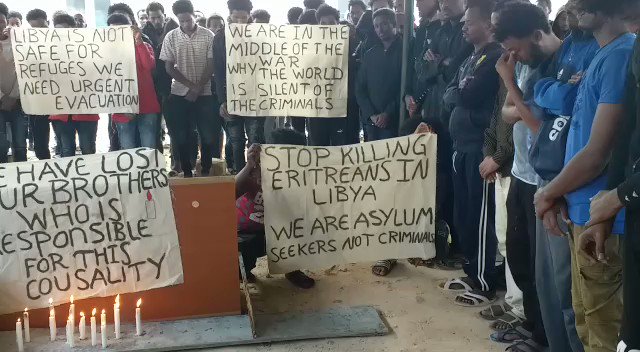 LIBYA IS NOT
SAFE FOR
REFUGES WE
NEED URGENT
EVACUATION
WE ARE IN THE
MIDDLE OF THE
WAR
WHY THE WORLD
IS SILENT OF
THE CRIMINALS
E HAVE LOSI
UR BROTHERS
WHO IS
RESPONSIBLE
FOR THIS
COUSALITY
STOP KILLING
ERITREANS IN
LIBYA
WE ARE ASYLUM
SEEKERS NOT CRIMINALS